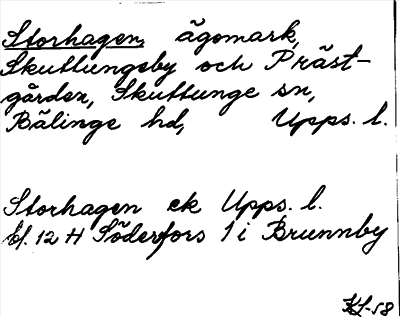 Storhagen, ägomark,
Skuttungeby och Präst-
gården, Skuttunge sn,
Bälinge hd, Upps. l.
Storhagen ek Upps. l.
bl. 12 H Söderfors 1 i Brunnby
KL-58